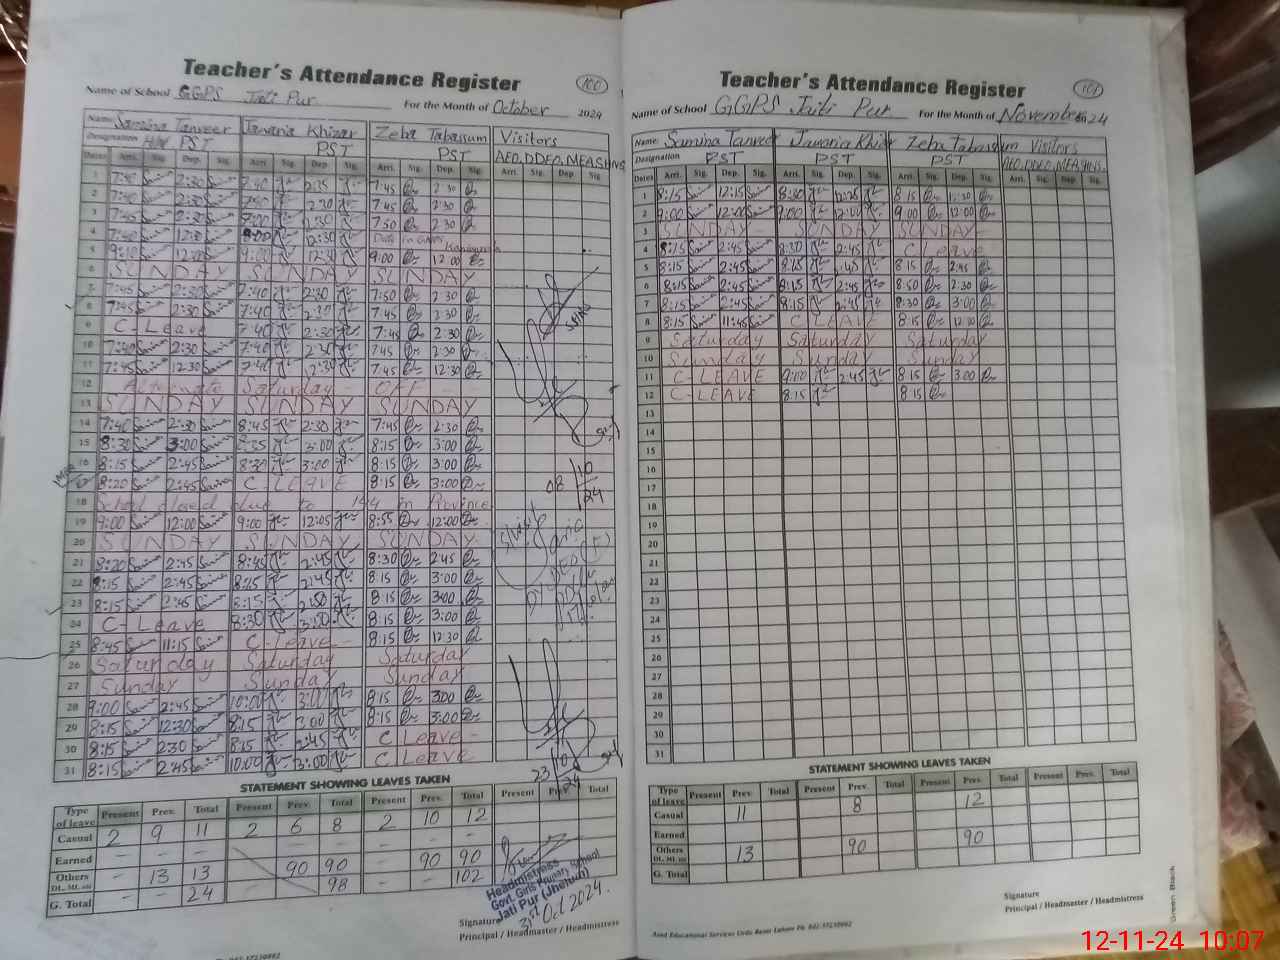 Teacher's Attendance Register
100
Name of School GGPS Jati Pur For the Month of October 2024
Name: Samina Tanveer Javaria Khizar Zeba Tabassum Visitors
Designation HM PST PST PST AEO, DDEO, MEA SHNS
Dates Arri. Sig. Dep. Sig. Arri. Sig. Dep. Sig. Arri. Sig. Dep. Sig. Arri. Sig. Dep. Sig.
1 7:40 2:30 7:40 2:35 7:45 2 30
2 7:40 2:30 7:40 2:30 7 45 2 30
3 7:45 2:30 7:00 2:30 7 50 2 30
4 7:50 12:30 8:00 12:30
5 9:10 12:00 9:00 12:30 9:00 12 00
6 SUNDAY SUNDAY SUNDAY
7 7:45 2:30 7:40 2:30 7:50 2 30
8 7:45 2:30 7:40 2:30 7 45 2:30
9 C-Leave 7:40 2:30 7:45 2 30
10 7:40 2:30 7:40 2:30 7 45 2 30
11 7:45 12:30 7:40 12:30 7:45 12 30
12 Alternate Saturday OFF
13 SUNDAY SUNDAY SUNDAY
14 7:40 2:30 8:45 2:30 7:45 2:30
15 8:30 3:00 8:35 3:00 8:15 3:00
16 8:15 2:45 8:30 3:00 8:15 3:00
17 8:20 2:45 C. LEAVE 8:15 3:00
18 School closed due to 144 in Province
19 9:00 12:00 9:00 12:05 8:55 12:00
20 SUNDAY SUNDAY SUNDAY
21 8:20 2:45 8:45 2:45 8:30 2:45
22 8:15 2:45 8:15 2:45 8:15 3:00
23 8:15 2:45 8:15 2:50 8:15 3:00
24 C-Leave 8:30 3:00 8:15 3:00
25 8:45 11:15 C-Leave 8:15 12 30
26 Saturday Saturday Saturday
27 Sunday Sunday Sunday
28 9:00 2:45 10:00 3:00 8:15 3:00
29 8:15 12:30 8:15 3:00 8:15 3:00
30 8:15 2:30 8:15 2:45 C Leave
31 8:15 2:45 10:00 3:00 C Leave
08/10/24
23/10/24
STATEMENT SHOWING LEAVES TAKEN
Type of leave Present Prev. Total Present Prev. Total Present Prev. Total Present Prev. Total
Casual 2 9 11 2 6 8 2 10 12
Earned - - - - - -
Others DL., ML. etc - 13 13 90 90 - 90 90
G. Total - - 24 98 - - 102
Headmistress
Govt. Girls Primary School
Jati Pur (Jhelum)
31st Oct 2024.
Signature
Principal / Headmaster / Headmistress
Teacher's Attendance Register
101
Name of School GGPS Jati Pur For the Month of November 2024
Name: Samina Tanveer Javaria Khizar Zeba Tabassum Visitors
Designation PST PST PST AEO, DDEO, MEA SHNS.
Dates Arri. Sig. Dep. Sig. Arri. Sig. Dep. Sig. Arri. Sig. Dep. Sig. Arri. Sig. Dep. Sig.
1 8:15 12:15 8:30 12:25 8 15 12:30
2 9:00 12:00 9:00 12:00 9 00 12:00
3 SUNDAY SUNDAY SUNDAY
4 8:15 2:45 8:30 2:45 C Leave
5 8:15 2:45 8:15 2:45 8 15 2:45
6 8:15 2:45 8:15 2:45 8:50 2:30
7 8:15 2:45 8:15 2:45 8:30 3:00
8 8:15 11:45 C LEAVE 8:15 12:30
9 Saturday Saturday Saturday
10 Sunday Sunday Sunday
11 C-LEAVE 9:00 2:45 8:15 3:00
12 C-LEAVE 8:15 8 15
13
14
15
16
17
18
19
20
21
22
23
24
25
26
27
28
29
30
31
STATEMENT SHOWING LEAVES TAKEN
Type of leave Present Prev. Total Present Prev. Total Present Prev. Total Present Prev. Total
Casual 11 8 12
Earned 90
Others DL., ML. etc 13 90
G. Total
Signature
Principal / Headmaster / Headmistress
Azad Educational Services Urdu Bazar Lahore Ph: 042-37230882
Green Black
12-11-24 10:07